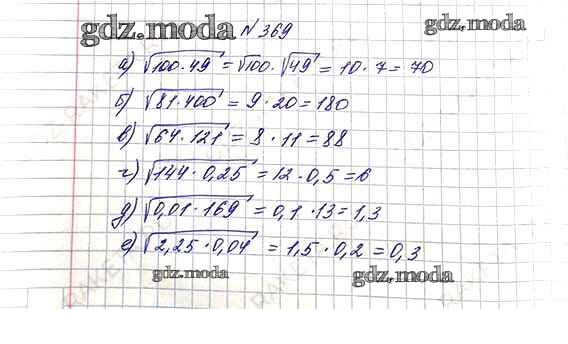 gdz.moda № 369 gdz.moda
а) √100·49 = √100·√49 = 10·7 = 70
б) √81·400 = 9·20 = 180
в) √64·121 = 8·11 = 88
г) √144·0,25 = 12·0,5 = 6
д) √0,01·169 = 0,1·13 = 1,3
е) √2,25·0,04 = 1,5·0,2 = 0,3
gdz.moda gdz.moda